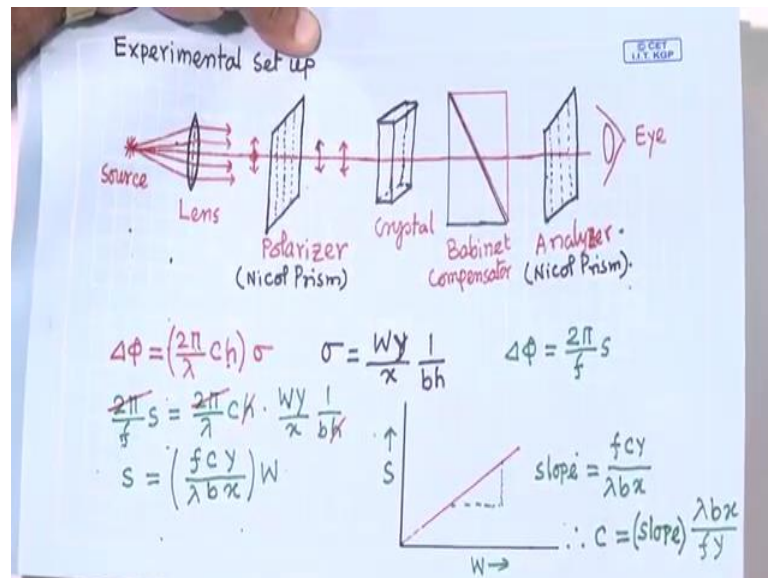 Experimental set up
© CET
I.I.T. KGP
Source
Lens
Polarizer
(Nicol Prism)
Crystal
Babinet
Compensator
Analyzer.
(Nicol Prism).
Eye
Δφ = (2π/λ ch) σ
σ = Wy/x 1/bh
Δφ = 2π/f s
2π/f s = 2π/λ ch · Wy/x 1/bh
S = (fcy/λbx) W
↑
S
W→
slope = fcy/λbx
∴ C = (slope) λbx/fy